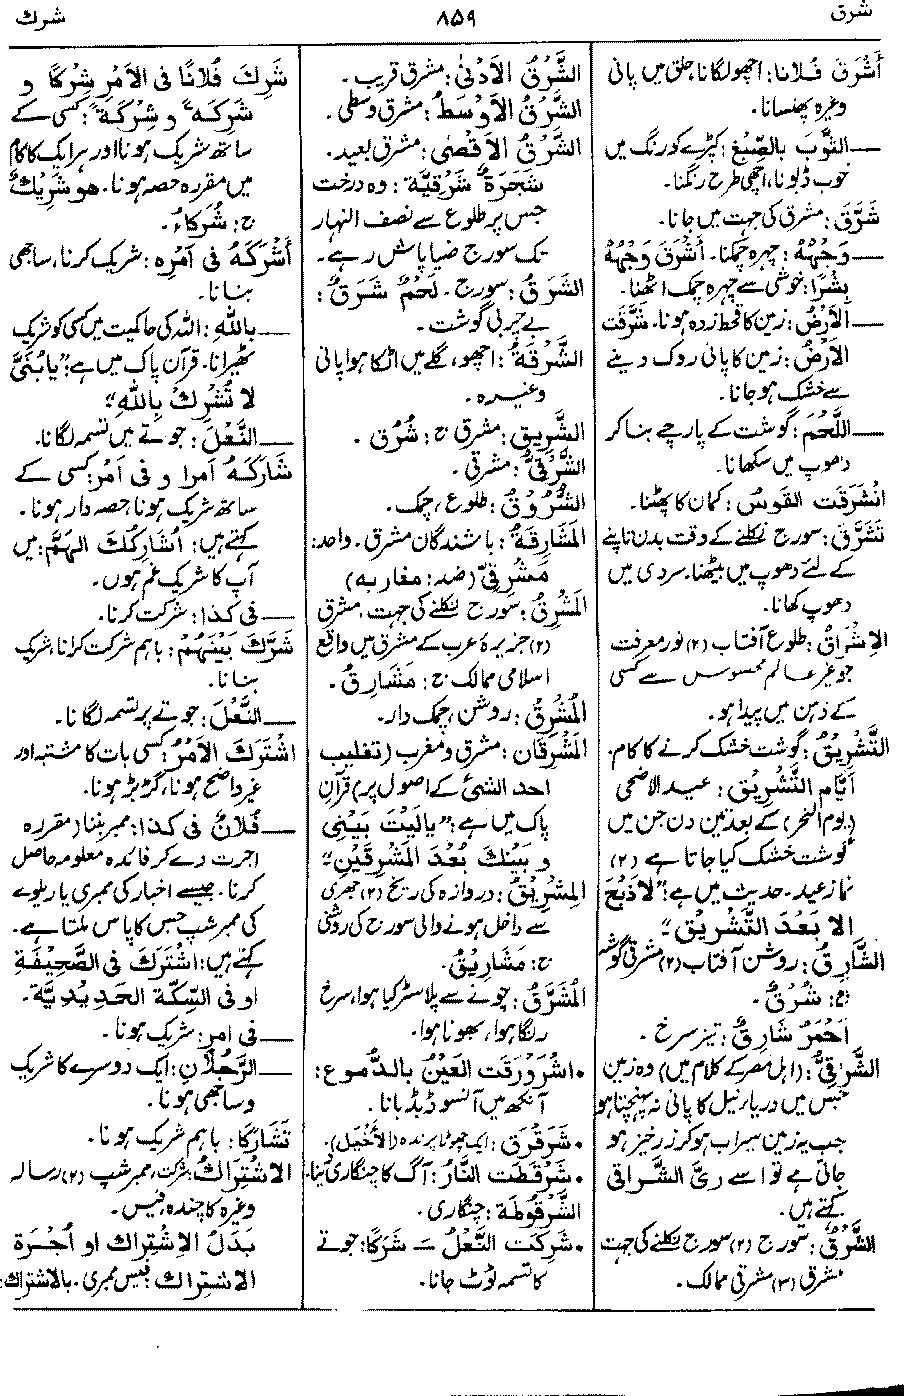 شرق
۸۵۹
شرك
أَشْرَقَ فُلَانًا: اچھو لگانا، حلق میں پانی
وغیرہ پھنسانا.
— الثَّوْبَ بالصِّبْغِ: کپڑے کو رنگ میں
خوب ڈبونا، اچھی طرح رنگنا.
شَرَّقَ: مشرق کی جہت میں جانا.
— وَجْهُهُ: چہرہ چمکنا. أَشْرَقَ وَجْهُهُ
بِشْرًا: خوشی سے چہرہ چمک اٹھنا.
— الأَرْضُ: زمین کا قحط زدہ ہونا. شَرَّقَت
الأَرْضُ: زمین کا پانی روک دینے
سے خشک ہو جانا.
— اللَّحْمَ: گوشت کے پارچے بنا کر
دھوپ میں سکھانا.
انْشَرَقَتِ القَوْسُ: کمان کا پھٹنا.
تَشَرَّقَ: سورج نکلنے کے وقت بدن تاپنے
کے لئے دھوپ میں بیٹھنا. سردی میں
دھوپ کھانا.
الإشْرَاقُ: طلوع آفتاب (۲) نورِ معرفت
جو غیر عالم محسوس سے کسی
کے ذہن میں پیدا ہو.
التَّشْرِيقُ: گوشت خشک کرنے کا کام.
أيَّام التَّشْرِيق: عید الاضحی
(یوم النحر) کے بعد تین دن جن میں
گوشت خشک کیا جاتا ہے (۲)
نماز عید. حدیث میں ہے: "لا ذَبْحَ
الا بَعْدَ التَّشْرِيقِ"
الشَّارِقُ: روشن آفتاب (۲) مشرقی گوشہ
ج: شُرُقٌ.
أحْمَرُ شَارِقٌ: تیز سرخ.
الشَّرَاقِيُّ: (اہل مصر کے کلام میں) وہ زمین
جس میں دریائے نیل کا پانی نہ پہنچتا ہو
جب یہ زمین سیراب ہو کر زرخیز ہو
جاتی ہے تو اسے رَيُّ الشَّرَاقِي
کہتے ہیں.
الشَّرْقُ: سورج (۲) سورج نکلنے کی جہت
مشرق (۳) مشرقی ممالک.
الشَّرْقُ الأَدْنٰى: مشرق قریب.
الشَّرْقُ الأَوْسَطُ: مشرق وسطی.
الشَّرْقُ الأَقْصٰى: مشرق بعید.
شَجَرَةٌ شَرْقِيَّةٌ: وہ درخت
جس پر طلوع سے نصف النہار
تک سورج ضیا پاش رہے.
الشَّرَقُ: سورج. لَحْمٌ شَرَقٌ:
بے چربی گوشت.
الشَّرْقَةُ: اچھو، گلے میں اٹکا ہوا پانی
وغیرہ.
الشَّرِيق: مشرق ج: شُرُق.
الشَّرْقِيُّ: مشرقی.
الشُّرُوقُ: طلوع، چمک.
المَشَارِقَةُ: باشندگان مشرق. واحد:
مَشْرِقِيٌّ (ضد: مغاربہ)
المَشْرِقُ: سورج نکلنے کی جہت، مشرق
(۲) جزیرۂ عرب کے مشرق میں واقع
اسلامی ممالک ج: مَشَارِقُ.
المُشْرِقُ: روشن، چمک دار.
المَشْرِقَان: مشرق و مغرب (تغلیب
احد الشیٔ کے اصول پر) قرآن
پاک میں ہے: "يالَيْتَ بَيْنِي
و بَيْنَكَ بُعْدَ المَشْرِقَيْنِ"
المِشْرِيقُ: دروازہ کی ریخ (۲) جھری
سے داخل ہونے والی سورج کی روشنی
ج: مَشَارِيقُ.
المُشَرَّقُ: چونے سے پلاسٹر کیا ہوا، سرخ
رنگا ہوا، بھونا ہوا.
• اشْرَوْرَقَتِ العَيْنُ بالدُّموع:
آنکھ میں آنسو ڈبڈبانا.
• شَرَقْرَق: ایک چھوٹا پرندہ (الأَخْيَل).
• شَرْقَطَتِ النَّارُ: آگ کا چنگاری
الشَّرْقُوطَة: چنگاری.
• شَرِكَتِ النَّعْلُ ــَـ شَرَكًا: جوتے
کا تسمہ ٹوٹ جانا.
شَرِكَ فُلَانًا فى الأمْرِ شِرْكًا و
شَرِكَةً و شِرْكَةً: کسی کے
ساتھ شریک ہونا اور ہر ایک کا کام
میں مقررہ حصہ ہونا. هو شَرِيكٌ
ج: شُرَكَاءُ.
أَشْرَكَهُ فى أمْرِهِ: شریک کرنا، ساجھی
بنانا.
— باللّٰهِ: اللہ کی حاکمیت میں کسی کو شریک
ٹھہرانا. قرآن پاک میں ہے: "يابُنَيَّ
لا تُشْرِكْ بِاللّٰهِ"
— النَّعْلَ: جوتے میں تسمہ لگانا.
شَارَكَهُ أمرا و فى أمْرٍ: کسی کے
ساتھ شریک ہونا، حصہ دار ہونا.
کہتے ہیں: أُشَارِكُكَ الهَمَّ: میں
آپ کا شریک غم ہوں.
— فى كذا: شرکت کرنا.
شَرَّكَ بَيْنَهُمْ: باہم شرکت کرانا، شریک
بنانا.
— النَّعْلَ: جوتے پر تسمہ لگانا.
اشْتَرَكَ الأمْرُ: کسی بات کا مشتبہ اور
غیر واضح ہونا، گڑبڑ ہونا.
— فُلَانٌ فى كذا: ممبر بننا (مقررہ
اجرت دے کر فائدہ معلومہ حاصل
کرنا. جیسے اخبار کی ممبری یا ریلوے
کی ممبرشپ جس کا پاس ملتا ہے.
کہتے ہیں: اشْتَرَكَ فى الصَّحِيفَةِ
او فى السِّكَّة الحَدِيدِيَّة.
— فى امر: شریک ہونا.
— الرَّجُلَانِ: ایک دوسرے کا شریک
و ساجھی ہونا.
تَشَارَكَا: باہم شریک ہونا.
الاشْتِرَاكُ: شرکت، ممبرشپ (۲) رسالہ
وغیرہ کا چندہ، فیس.
بَدَلُ الإشْتِرَاك او أُجْرَة
الاشْتِراك: فیس ممبری. بالاشتراك: